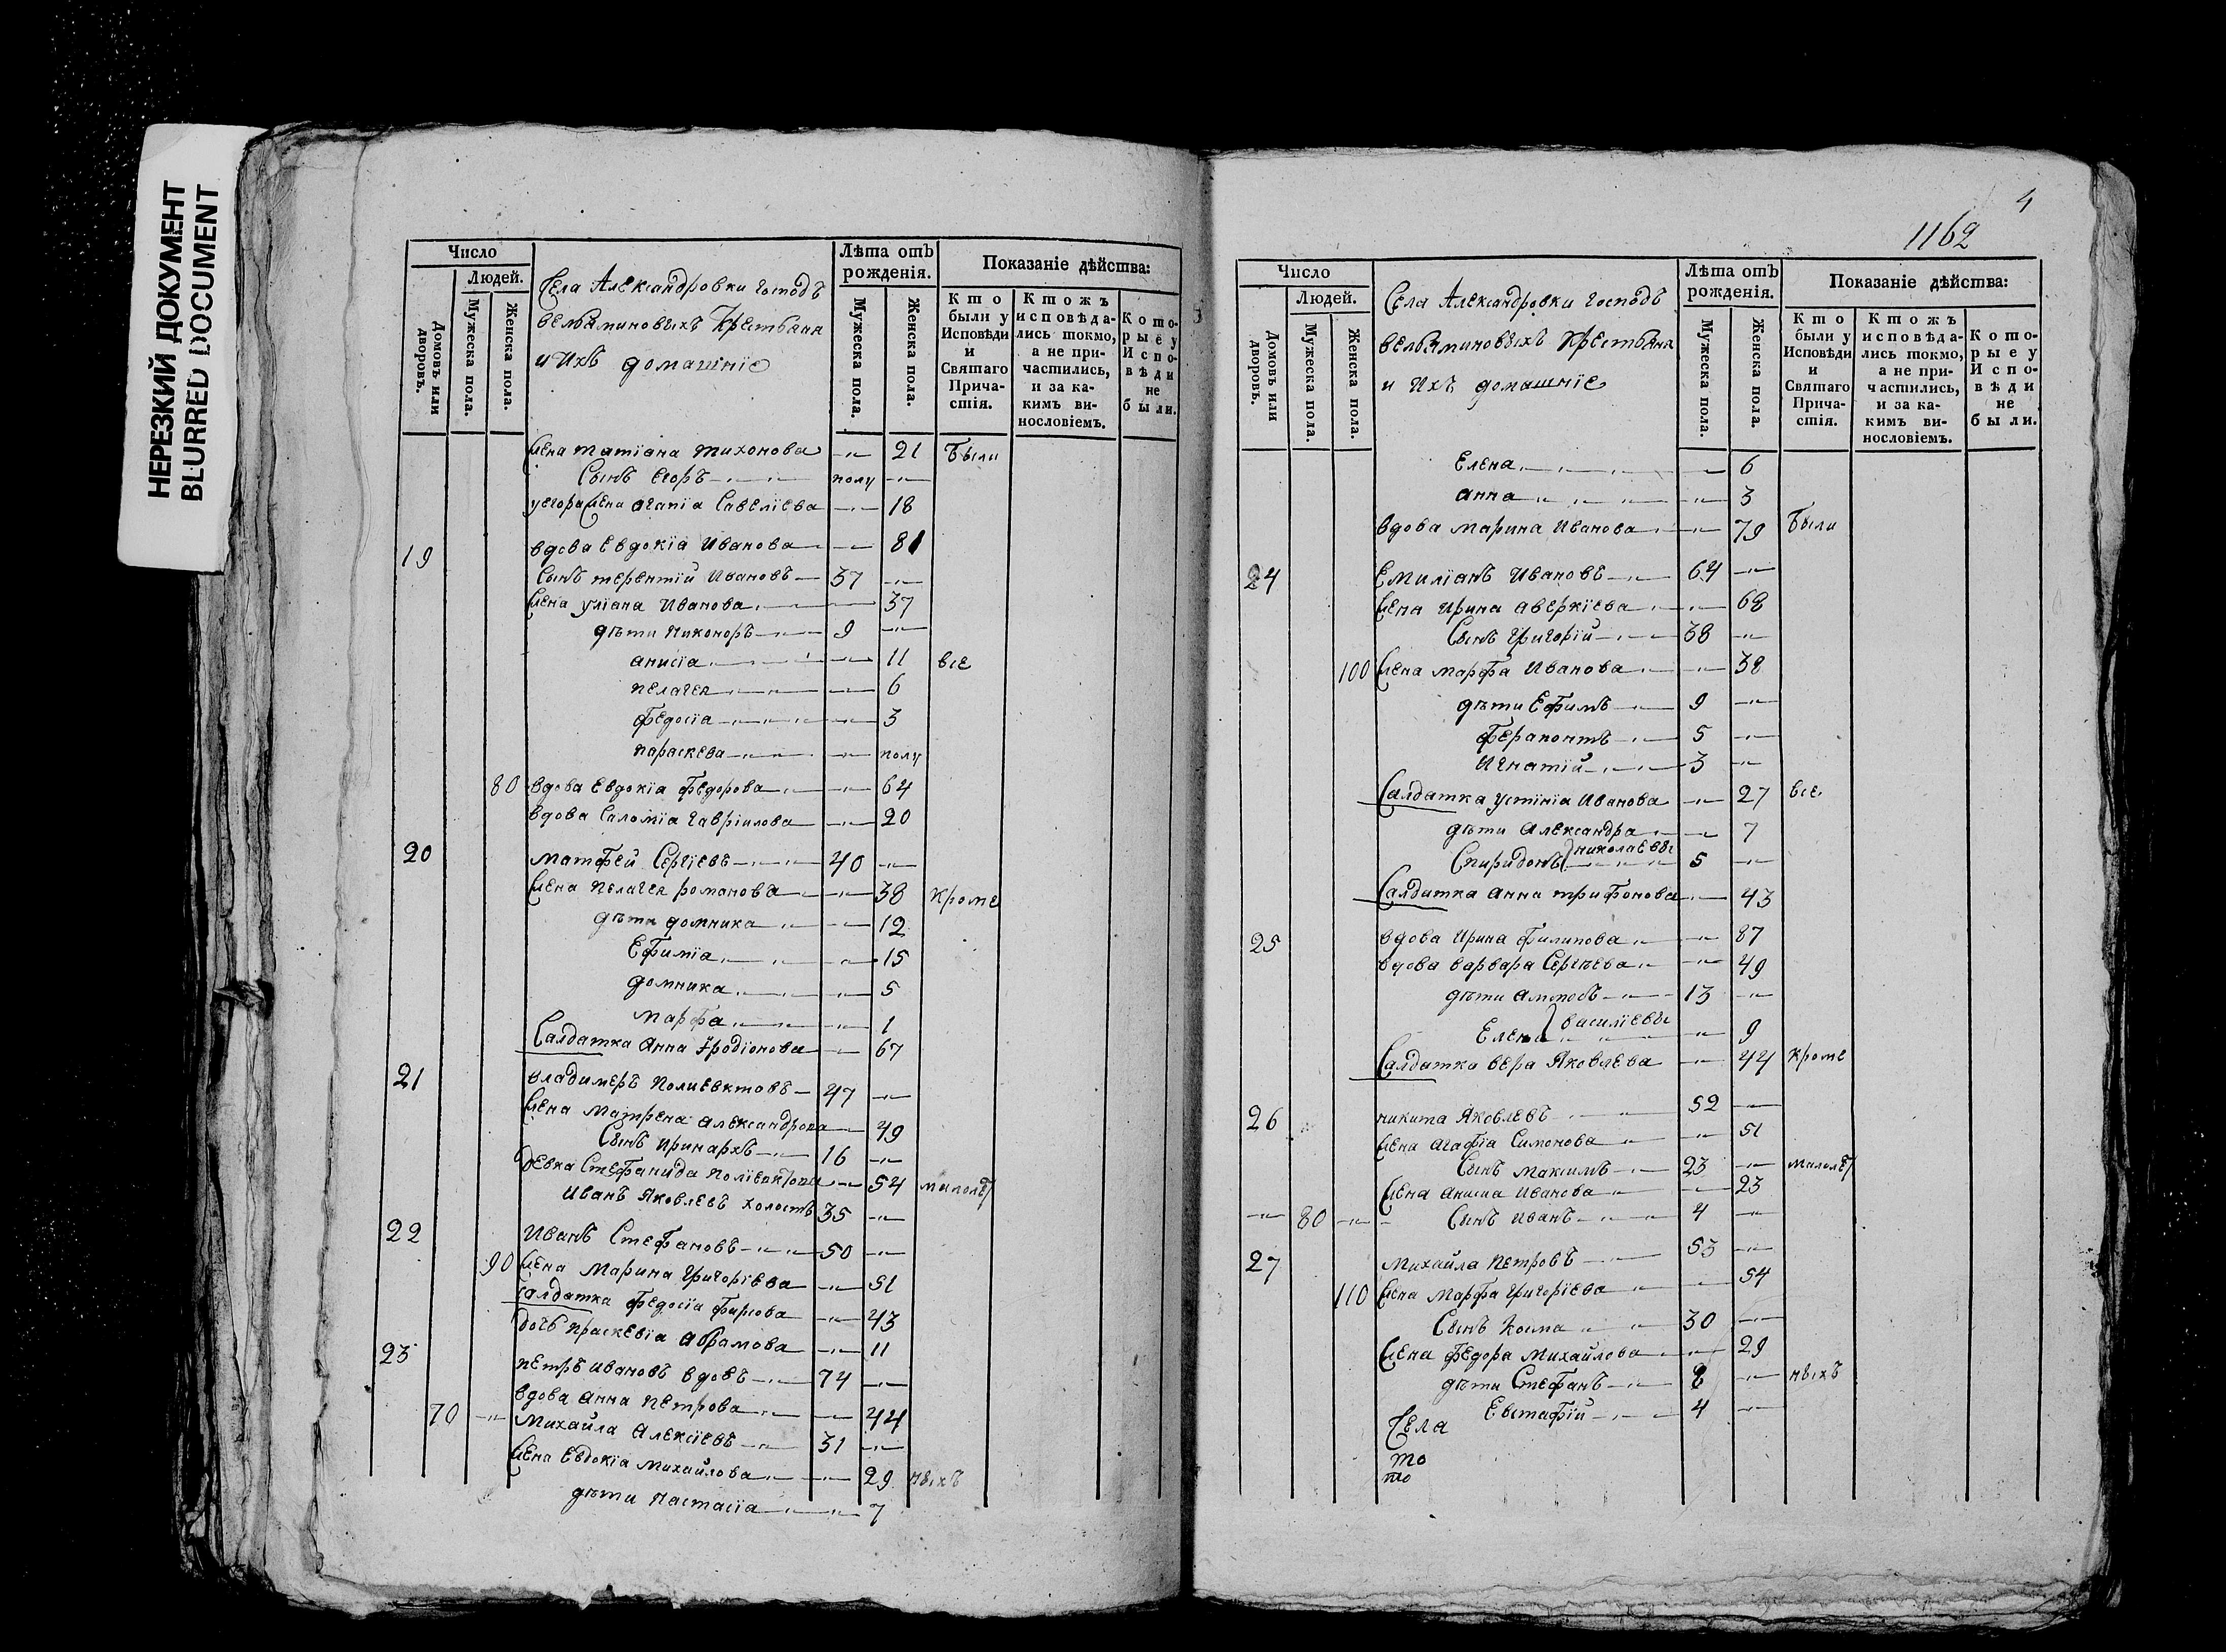 НЕРЕЗКИЙ ДОКУМЕНТ
BLURRED DOCUMENT
Число
Людей.
Домовъ или дворовъ.
Мужеска пола.
Женска пола.
Села Александровки господъ
вельяминовыхъ Крестьяня
и Ихъ домашніе
Лѣта отъ рожденія.
Мужеска пола.
Женска пола.
Показаніе дѣйства:
Кто были у Исповѣди и Святаго Прича-стія.
Ктожъ исповѣда-лись токмо, а не при-частились, и за ка-кимъ ви-нословіемъ.
Кото-рые у Испо-вѣди не были.
жена татіана тихонова 21 Были
Сынъ егоръ полу
у егора жена агапіа Савеліева 18
19 вдова Евдокіа Иванова 81
Сынъ терентій Ивановъ 37
жена уліана Иванова 37
дѣти никоноръ 9
анисіа 11 все
пелагея 6
федосіа 3
параскева полу
80 вдова Евдокіа федорова 64
вдова Саломіа гавріилова 20
20 матфей Сергіевъ 40
жена пелагея романова 38 кроме
дѣти домника 12
Ефиміа 15
домника 5
марфа 1
Салдатка Анна Іродіонова 67
21 владимеръ полиевктовъ 47
жена матрена александрова 49
Сынъ иринархъ 16
девка Стефанида поліевктова 54 малолѣт
Иванъ Яковлевъ холостъ 35
22 Иванъ Стефановъ 50
90 жена Марина григоріева 51
Салдатка федосіа фирсова 43
дочь праскевіа абрамова 11
23 петръ ивановъ вдовъ 74
вдова анна петрова 44
70 Михайла Алексіевъ 31
жена евдокіа михайлова 29 ныхъ
дѣти настасіа 7
4
1162
Число
Людей.
Домовъ или дворовъ.
Мужеска пола.
Женска пола.
Села Александровки господъ
вельяминовыхъ Крестьяня
и Ихъ домашніе
Лѣта отъ рожденія.
Мужеска пола.
Женска пола.
Показаніе дѣйства:
Кто были у Исповѣди и Святаго Прича-стія.
Ктожъ исповѣда-лись токмо, а не при-частились, и за ка-кимъ ви-нословіемъ.
Кото-рые у Испо-вѣди не были.
Елена 6
анна 3
вдова марина Иванова 79 Были
24 Емиліанъ Ивановъ 64
жена Ирина аверкіева 68
Сынъ григорій 38
100 жена марфа Иванова 38
дѣти Ефимъ 9
ферапонтъ 5
Игнатій 3
Салдатка устініа Иванова 27 все
дѣти Александра 7
Спиридонъ николаевы 5
Салдатка анна трифонова 43
25 вдова Ирина филипова 87
вдова варвара Сергѣева 49
дѣти 13
Елена василіевы 9
Салдатка вера Яковлева 44 кроме
26 никита Яковлевъ 52
жена агафіа Симонова 51
Сынъ максимъ 23 малолѣт
жена анисиа Иванова 23
80 Сынъ Иванъ 4
27 Михайла петровъ 53
110 жена марфа григоріева 54
Сынъ козма 30
жена федора михайлова 29
дѣти Стефанъ 8 ныхъ
Евстафій 4
Села
то
то